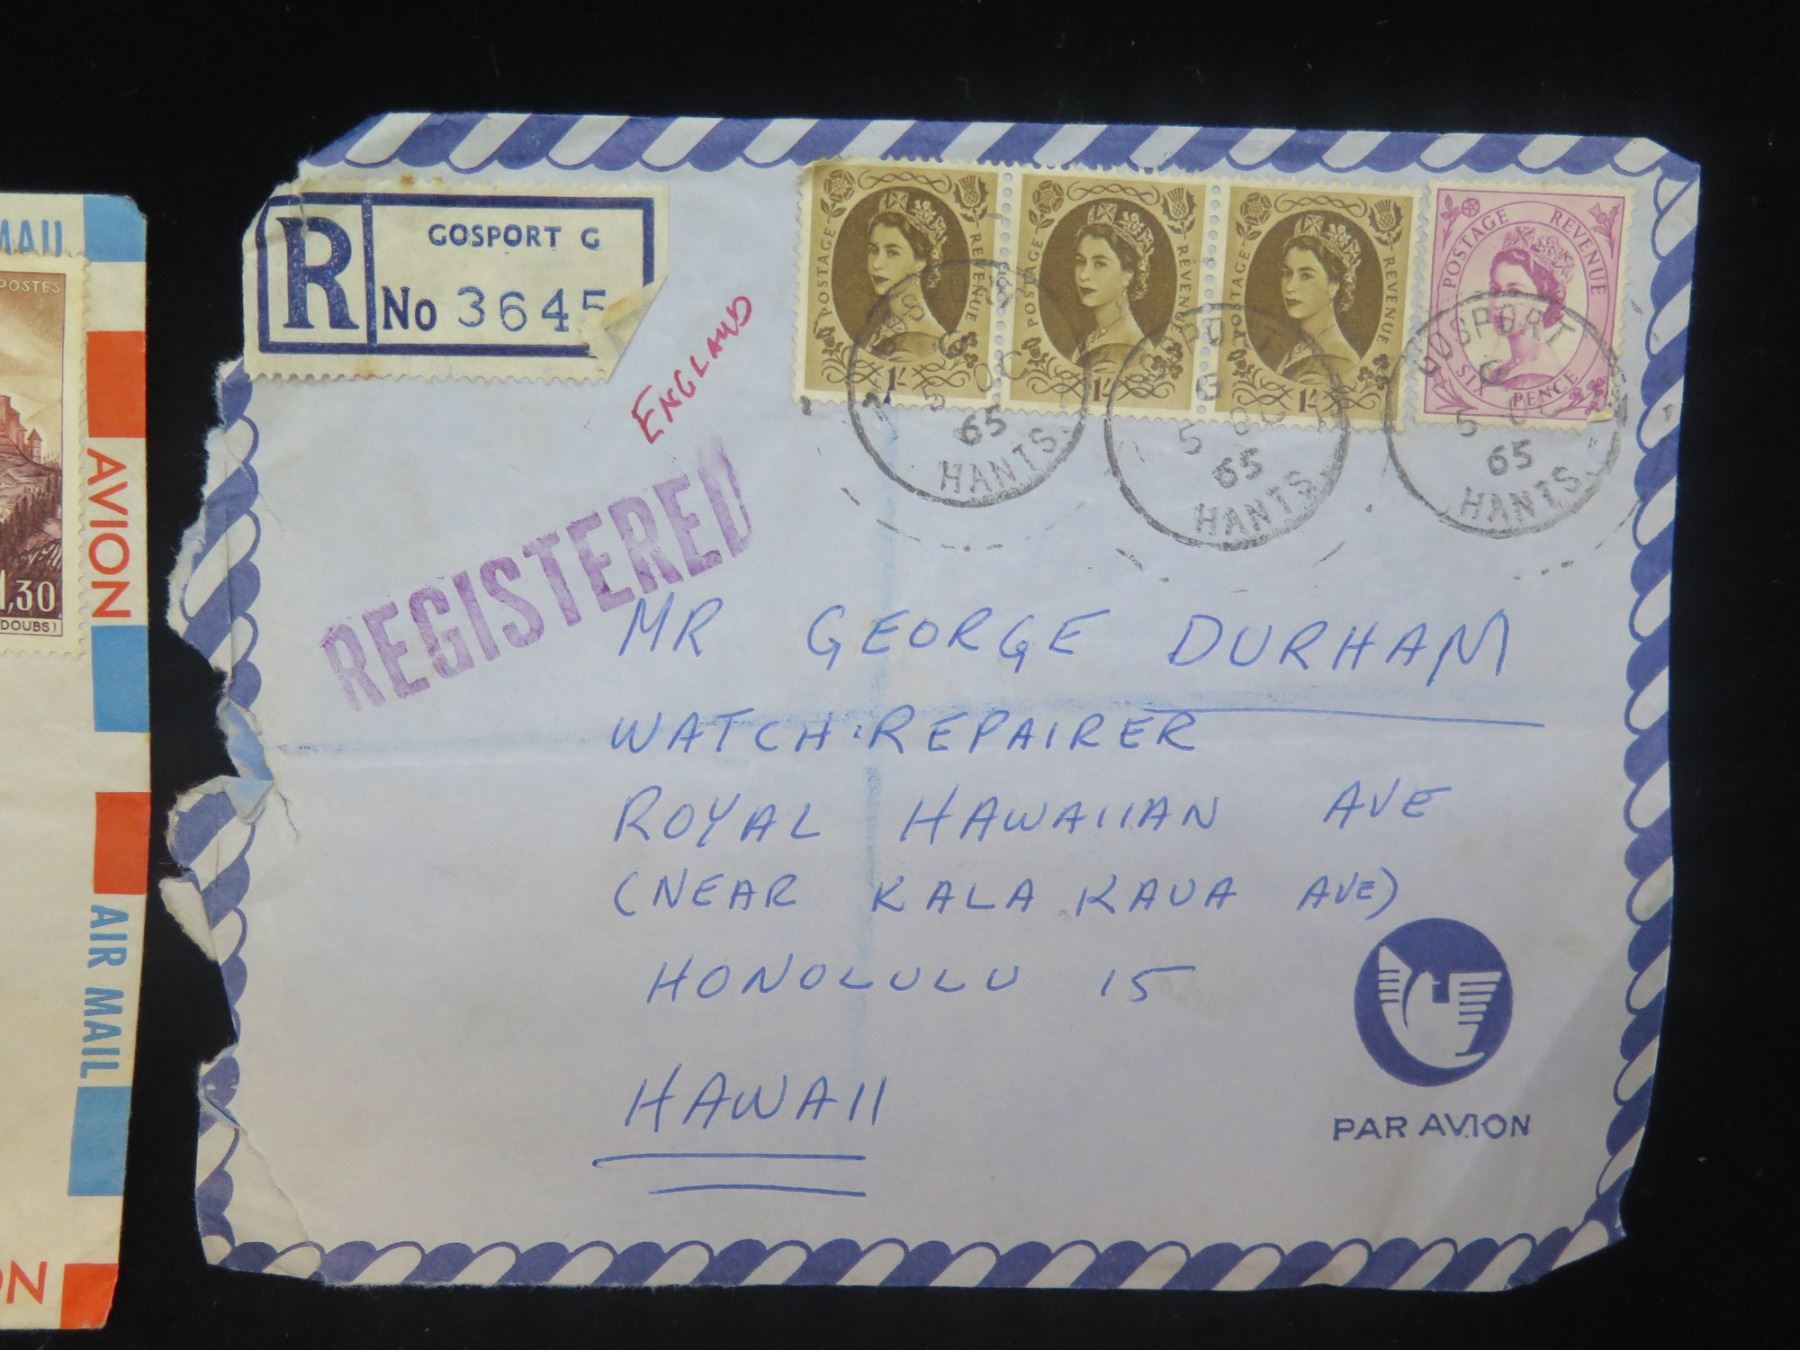 MAIL
POSTES
1,30
DOUBS)
AVION
AIR MAIL
ON
R
GOSPORT G
No 3645
ENGLAND
REGISTERED
POSTAGE REVENUE
1/-
POSTAGE REVENUE
1/-
POSTAGE REVENUE
1/-
POSTAGE REVENUE
SIX PENCE
5 OC
65
HANTS
5 OC
65
HANTS
GOSPORT
G
5 OC
65
HANTS
MR GEORGE DURHAM
WATCH·REPAIRER
ROYAL HAWAIIAN AVE
(NEAR KALA KAUA AVE)
HONOLULU 15
HAWAII
PAR AVION